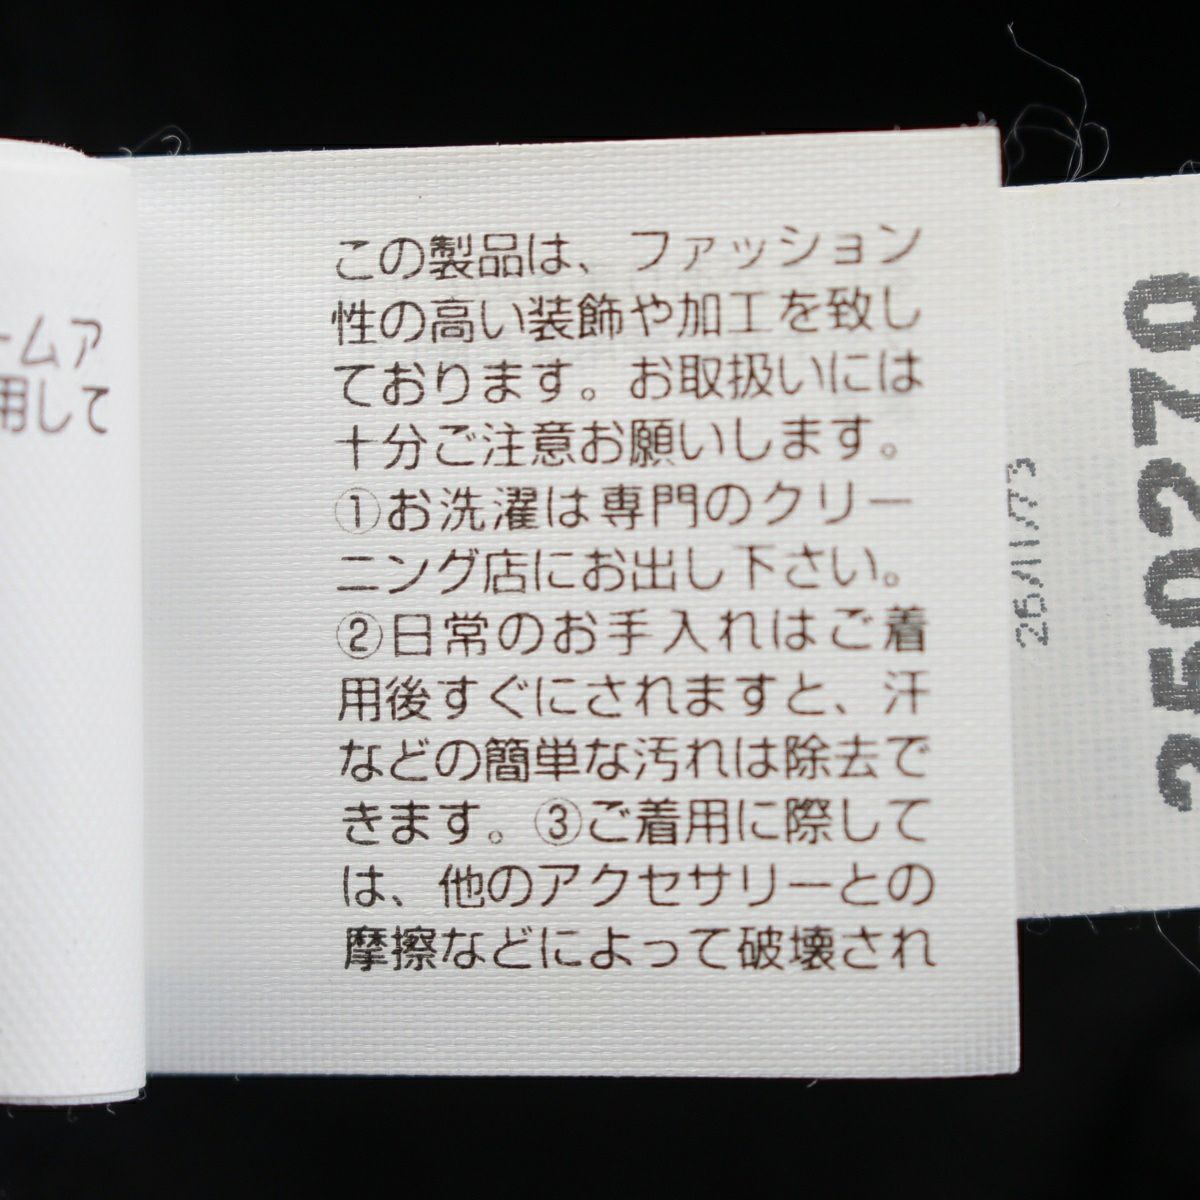 ームア
用して
この製品は、ファッション
性の高い装飾や加工を致し
ております。お取扱いには
十分ご注意お願いします。
①お洗濯は専門のクリー
ニング店にお出し下さい。
②日常のお手入れはご着
用後すぐにされますと、汗
などの簡単な汚れは除去で
きます。③ご着用に際して
は、他のアクセサリーとの
摩擦などによって破壊され
250270